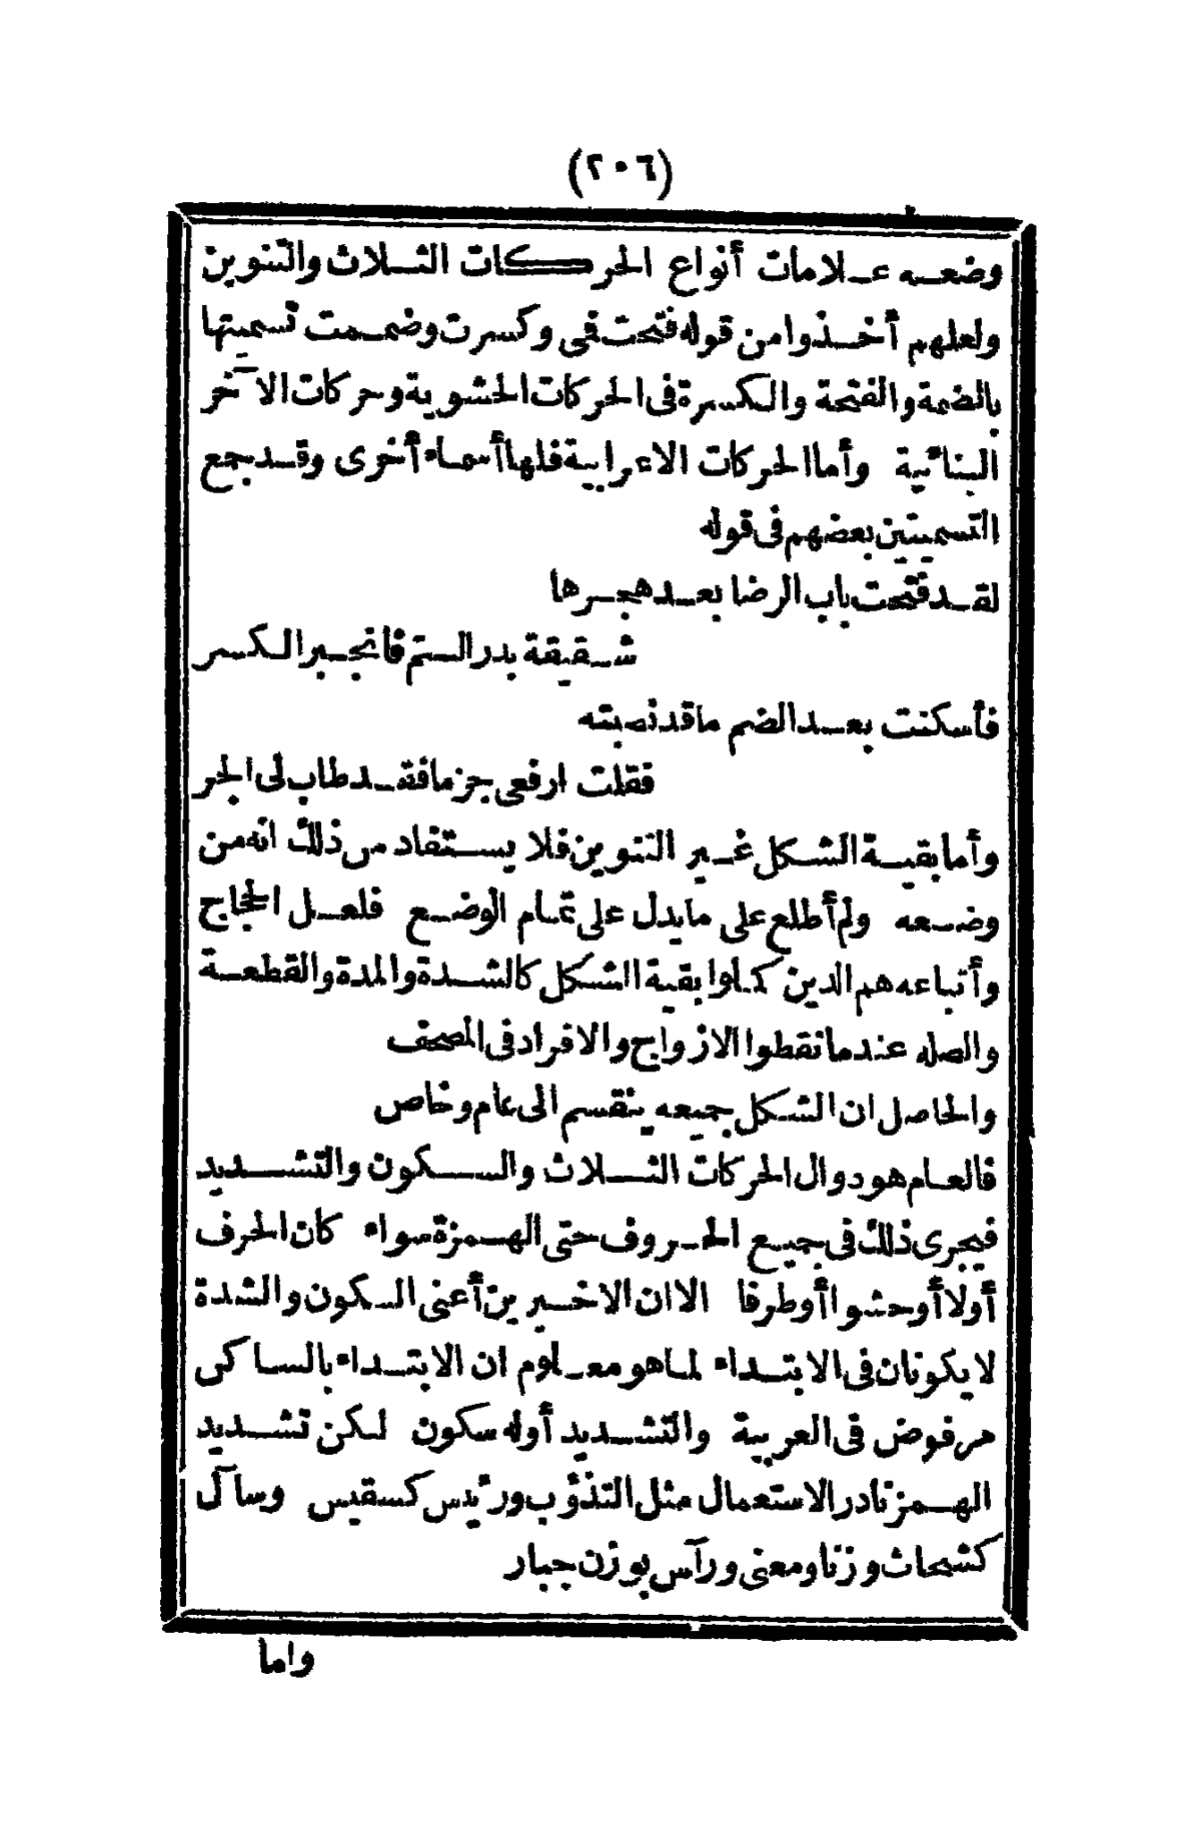 (٢٠٦)
وضعه علامات أنواع الحركات الثلاث والتنوين
ولعلهم أخذوا من قوله فتحت فمى وكسرت وضممت تسميتها
بالضمة والفتحة والكسرة فى الحركات الحشوية وحركات الآخر
البنائية وأما الحركات الاعرابية فلها أسماء أخرى وقد جمع
التسميتين بعضهم فى قوله
لقد فتحت باب الرضا بعد هجرها
شقيقة بدر التم فانجبر الكسر
فأسكنت بعد الضم ما قد نصبته
فقلت ارفعى جزما فقد طاب لى الجر
وأما بقية الشكل غير التنوين فلا يستفاد من ذلك انه من
وضعه ولم أطلع على ما يدل على تمام الوضع فلعل الحجاج
وأتباعه هم الذين كملوا بقية الشكل كالشدة والمدة والقطعة
والصله عند ما نقطوا الازواج والافراد فى المصحف
والحاصل ان الشكل جميعه ينقسم الى عام وخاص
فالعام هو دوال الحركات الثلاث والسكون والتشديد
فيجرى ذلك فى جميع الحروف حتى الهمزة سواء كان الحرف
أولا أو حشوا أو طرفا الا ان الاخيرين أعنى السكون والشدة
لا يكونان فى الابتداء لما هو معلوم ان الابتداء بالساكن
مرفوض فى العربية والتشديد أوله سكون لكن تشديد
الهمز نادر الاستعمال مثل التذؤب ورئيس كسقيس وسآل
كشحاث وزنا ومعنى ورآس بوزن جبار
واما